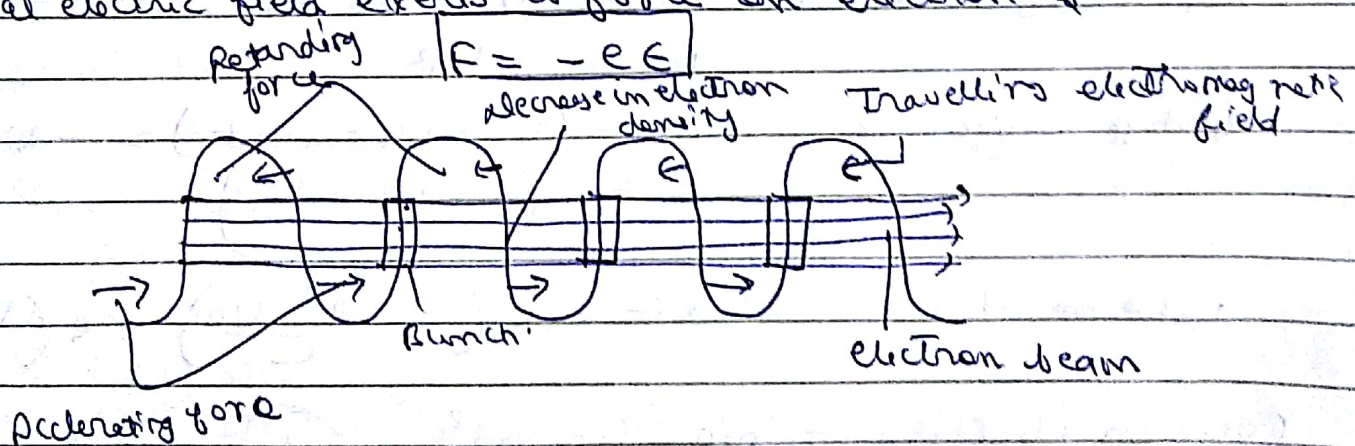 al electric field exerts a force on electron
Retarding
force
F = - e E
decrease in electron
density
Travelling electromagnetic
field
Bunch
electron beam
Accelerating force